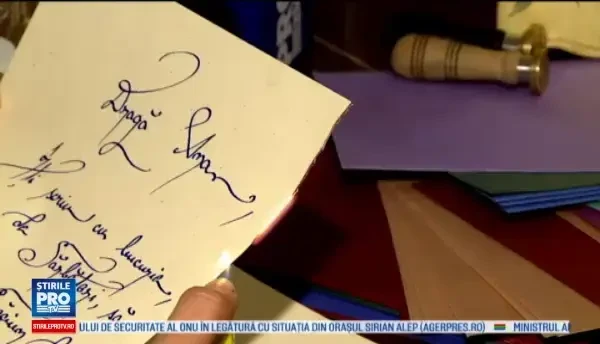 Dragă
Îți scriu cu bucurie,
de
Sărbători, să
STIRILE
PRO
TV
STIRILEPROTV.RO
ULUI DE SECURITATE AL ONU ÎN LEGĂTURĂ CU SITUAȚIA DIN ORAȘUL SIRIAN ALEP (AGERPRES.RO) MINISTRUL A